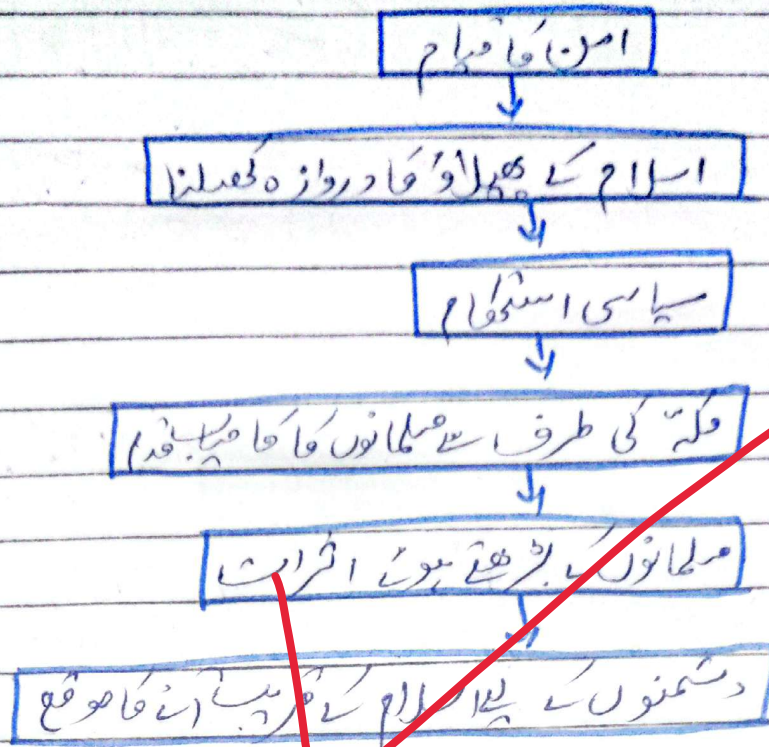 امن کا قیام
اسلام کے پھیلاؤ کا دروازہ کھلنا
سیاسی استحکام
مکہ کی طرف سے مسلمانوں کا کامیاب قدم
مسلمانوں کے بڑھتے ہوئے اثرات
دشمنوں کے لیے اسلام کے قریب آنے کا موقع